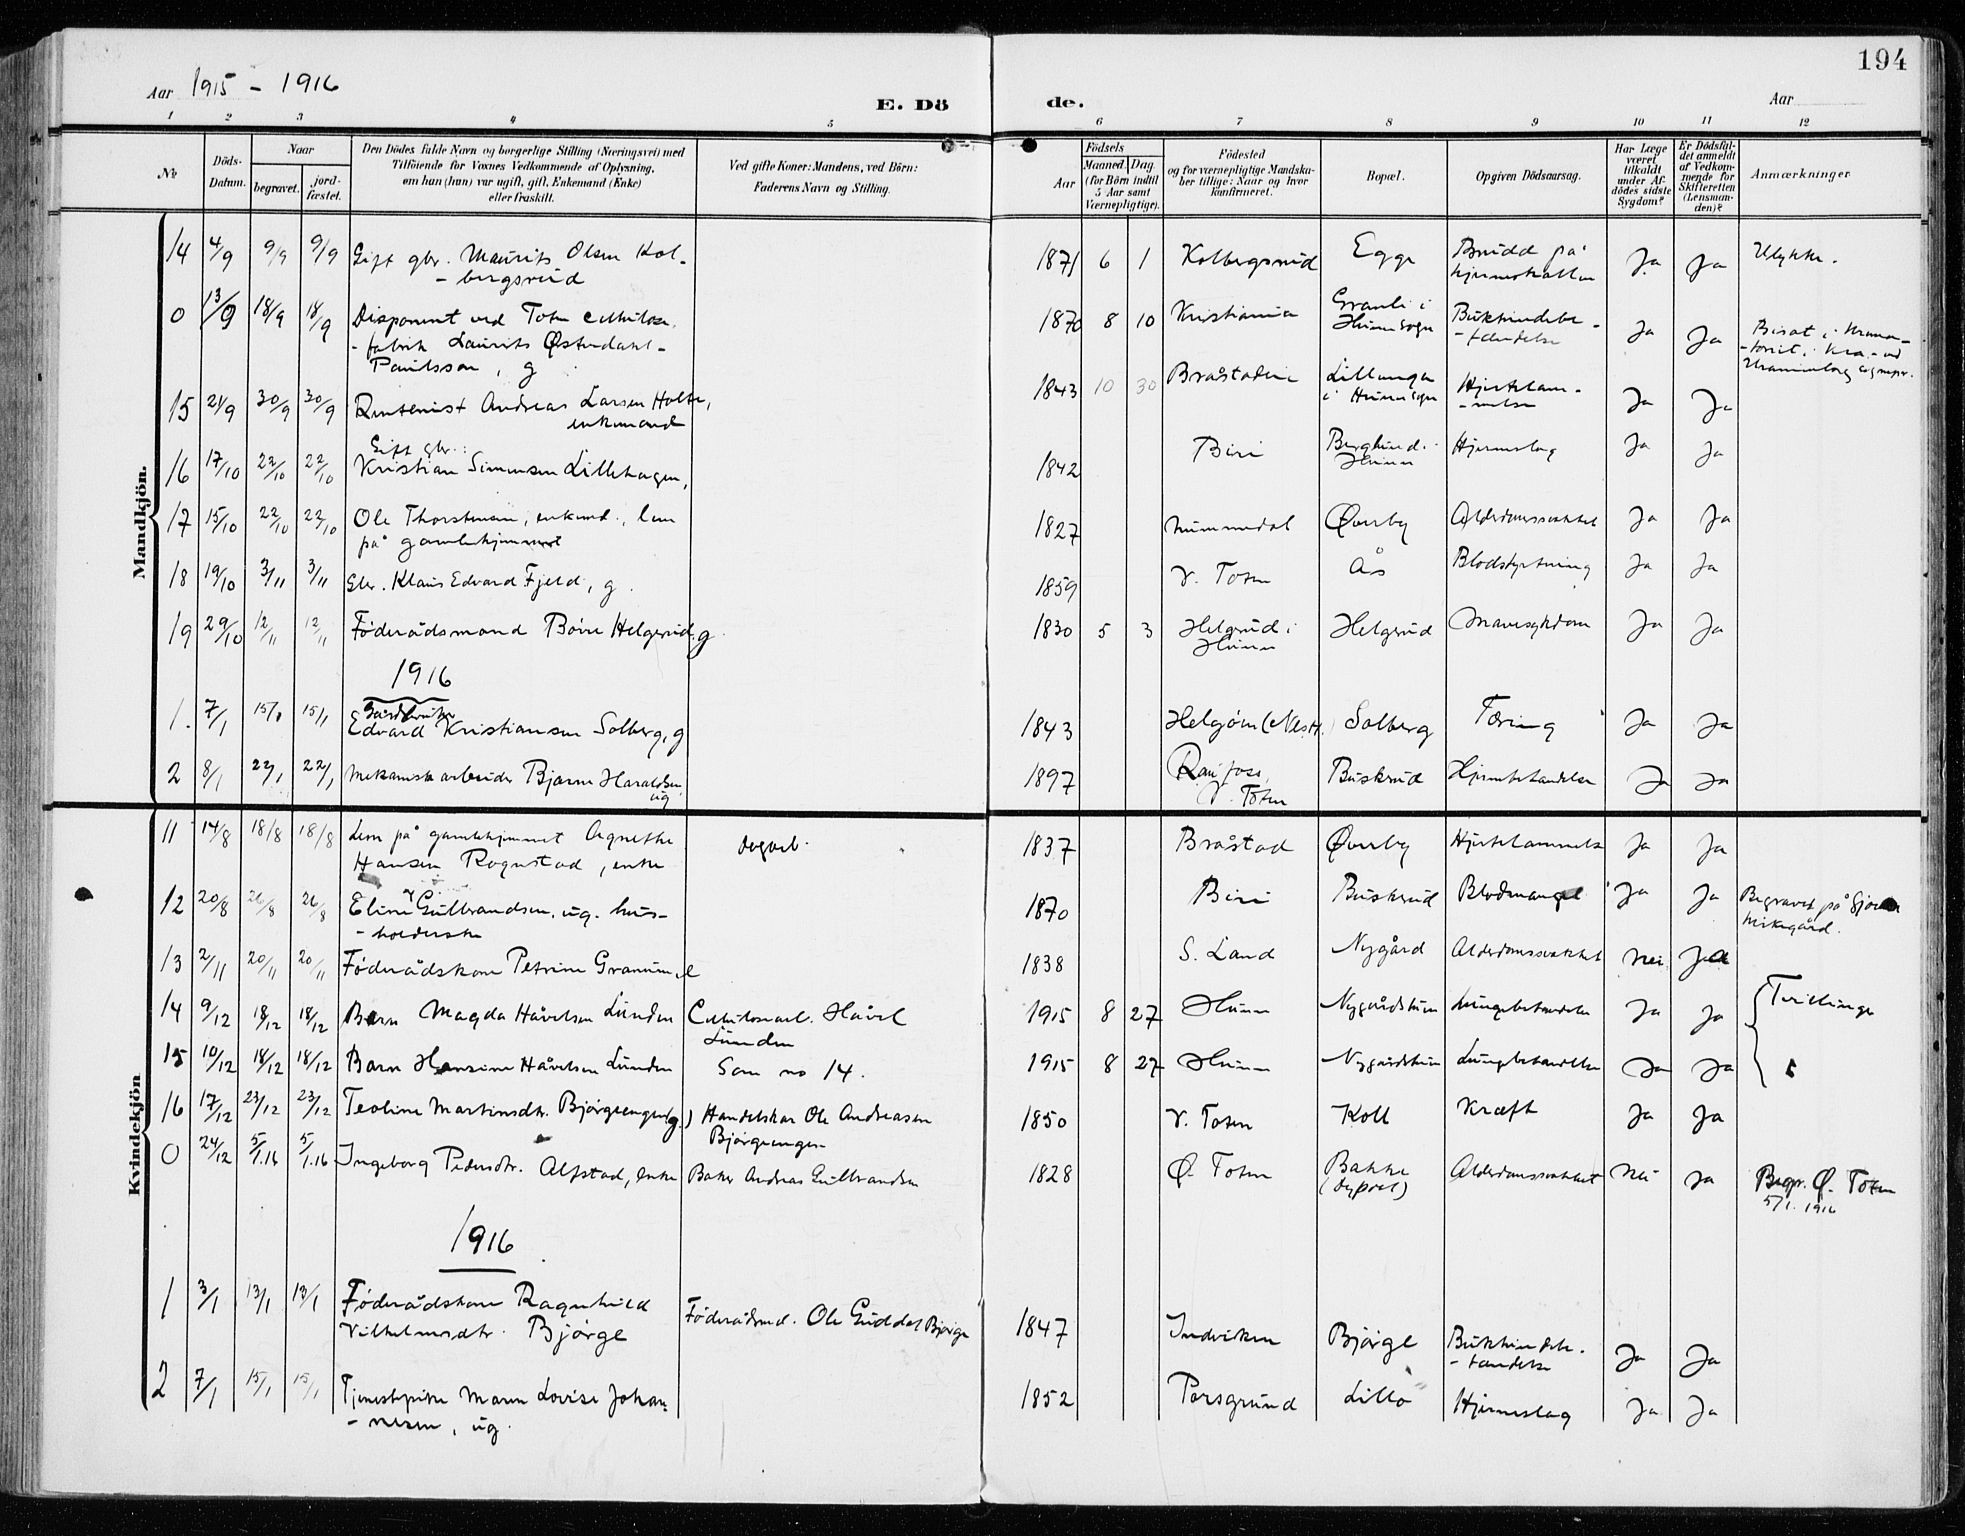 194
Aar 1915 - 1916
E. Dö de.
Aar
1 2 3 4 5 6 7 8 9 10 11 12
No
Döds-Datum.
Naar
begravet.
jord-fæstet.
Den Dödes fulde Navn og borgerlige Stilling (Næringsvei) med
Tilföiende for Voxnes Vedkommende af Oplysning,
om han (hun) var ugift, gift, Enkemand (Enke)
eller fraskilt.
Ved gifte Koner: Mandens, ved Börn:
Faderens Navn og Stilling.
Födsels
Aar
Maaned
Dag
(for Börn indtil
5 Aar samt
Værnepligtige).
Födested
og for værnepligtige Mandska-
ber tillige: Naar og hvor
konfirmeret.
Bopæl.
Opgiven Dödsaarsag.
Har Læge
været
tilkaldt
under Af-
dödes sidste
Sygdom?
Er Dödsfal-
det anmeldt
af Vedkom-
mende for
Skifteretten
(Lensman-
den)?
Anmærkninger
Mandkjön.
14 4/9 9/9 9/9 Gift gbr. Maurits Olsen Kol-
- bergsrud
1871 6 1 Kolbergsrud Egge Brudd på
hjerneskallen Ja Ja Ulykke.
0 13/9 18/9 18/9 Disponent ved Toten cellulose-
- fabrik Laurits Østendahl-
Paulsson, g
1870 8 10 Kristiania Granli i
Hunn sogn Bukhindebe-
- tændelse Ja Ja Bisat i Krema-
- toriet i Kra. ved
15 21/9 30/9 30/9 Rentenist Andreas Larsen Holte,
enkemand
1843 10 30 Bråstadlie Lillengen
i Hunn sogn Hjertelam-
- melse Ja Ja
16 17/10 22/10 22/10 Gift gbr.:
Kristian Simensen Lillehagen,
1842 Biri Berglund i
Hunn Hjerneslag Ja Ja
17 15/10 22/10 22/10 Ole Thorstensen, enkemd., lem
på gamlehjemmet
1827 Nummedal Øverby Alderdomssvakhet Ja Ja
18 19/10 3/11 3/11 Gbr. Klaus Edvard Fjeld, g.
1859 V. Toten Ås Blodstyrtning Ja Ja
19 29/10 12/11 12/11 Föderådsmand Börre Helgerud, g
1830 5 3 Helgerud i
Hunn Helgerud Mavesykdom Ja Ja
1916
1. 7/1 15/1 15/1 Gårdbruker
Edvard Kristiansen Solberg, g
1843 Helgöen (Nes H.) Solberg Tæring Ja Ja
2 8/1 22/1 22/1 Mekanisk arbeider Bjarne Haraldsen
ug
1897 Raufoss,
V. Toten Buskerud Hjernebetændelse Ja Ja
Kvindekjön
11 14/8 18/8 18/8 Lem på gamlehjemmet Agnethe
Hansen Rognstad, enke
dagarb.
1837 Bråstad Øverby Hjertelammelse Ja Ja
12 20/8 26/8 26/8 Eline Gulbrandsen, ug. hus-
- holderske
1870 Biri Buskerud Blodmangel Ja Ja Begravet på Gjövik
kirkegård.
13 2/11 20/11 20/11 Föderådskone Petrine Granum, e
1838 S. Land Nygård Alderdomssvakhet Nei Ja
14 9/12 18/12 18/12 Barn Magda Håvelsen Lunden Cellulosearb. Håvel
Lunden
1915 8 27 Hunn Nygårdshun Lungebetændelse Ja Ja Tvillinger
15 10/12 18/12 18/12 Barn Hansine Håvelsen Lunden Som no 14.
1915 8 27 Hunn Nygårdshun Lungebetændelse Ja Ja
16 17/12 23/12 23/12 Teoline Martinsdtr. Björgeengen (g.) Handelskar Ole Andreasen
Björgeengen
1850 V. Toten Koll Kræft Ja Ja
0 24/12 5/1.16 5/1.16 Ingeborg Pedersdtr. Alfstad, enke Baker Andreas Gulbrandsen
1828 Ø. Toten Bakke
Alderdomssvakhet Nei Ja Begr. Ø. Toten
5/1. 1916
1916
1 3/1 13/1 13/1 Föderådskone Ragnhild
Vilhelmsdtr. Björge Föderådsmd. Ole Guddal Björge
1847 Indviken Björge Bukhindebe-
- tændelse Ja Ja
2 7/1 15/1 15/1 Tjenestepike Maren Lovise Johan-
- nesen, ug.
1852 Porsgrund Lillo Hjerneslag Ja Ja